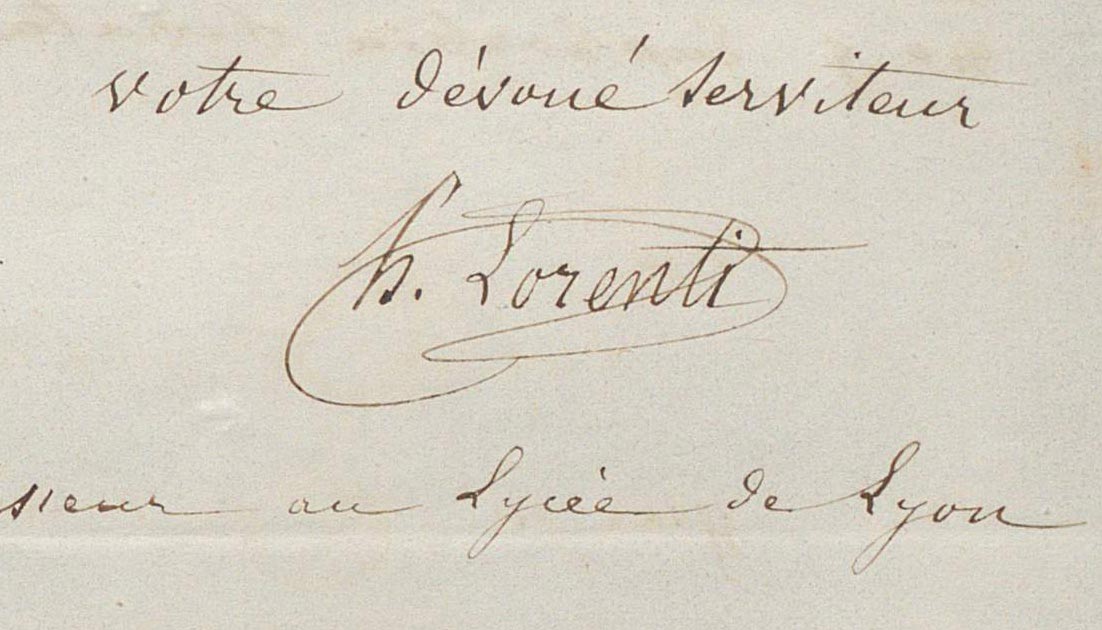 votre dévoué serviteur
h. Lorenti
sseur au Lycée de Lyon